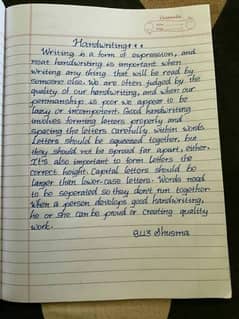 Handwriting
Writing is a form of expression, and
neat handwriting is important when
writing any thing that will be read by
someone else. We are often judged by the
quality of our handwriting, and when our
penmanship is poor we appear to be
lazy or incompetent. Good handwriting
involves forming letters properly and
spacing the letters carefully within words
Letters should be squeezed together, but
they should not be spread far apart, either.
It's also important to form letters the
correct height. Capital letters should be
larger than lower-case letters. Words need
to be seperated so they don't run together
When a person develops good handwriting,
he or she can be proud or creating quality
work.